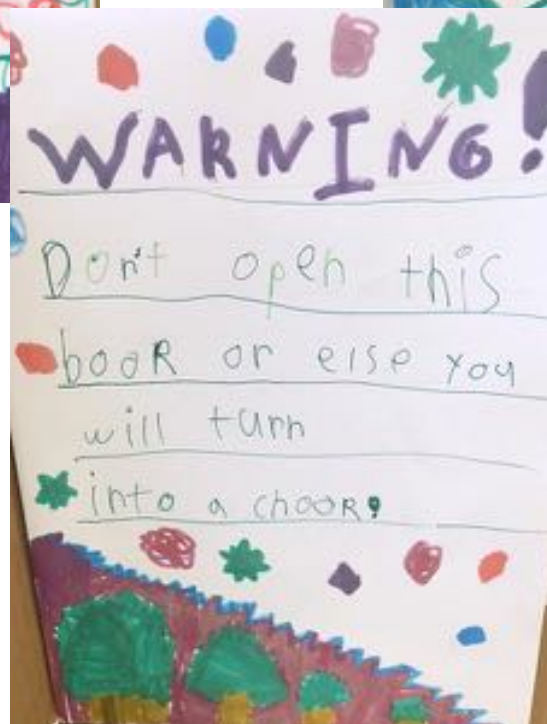 WARNING!
Don't open this
booR or else you
will turn
into a chooR!